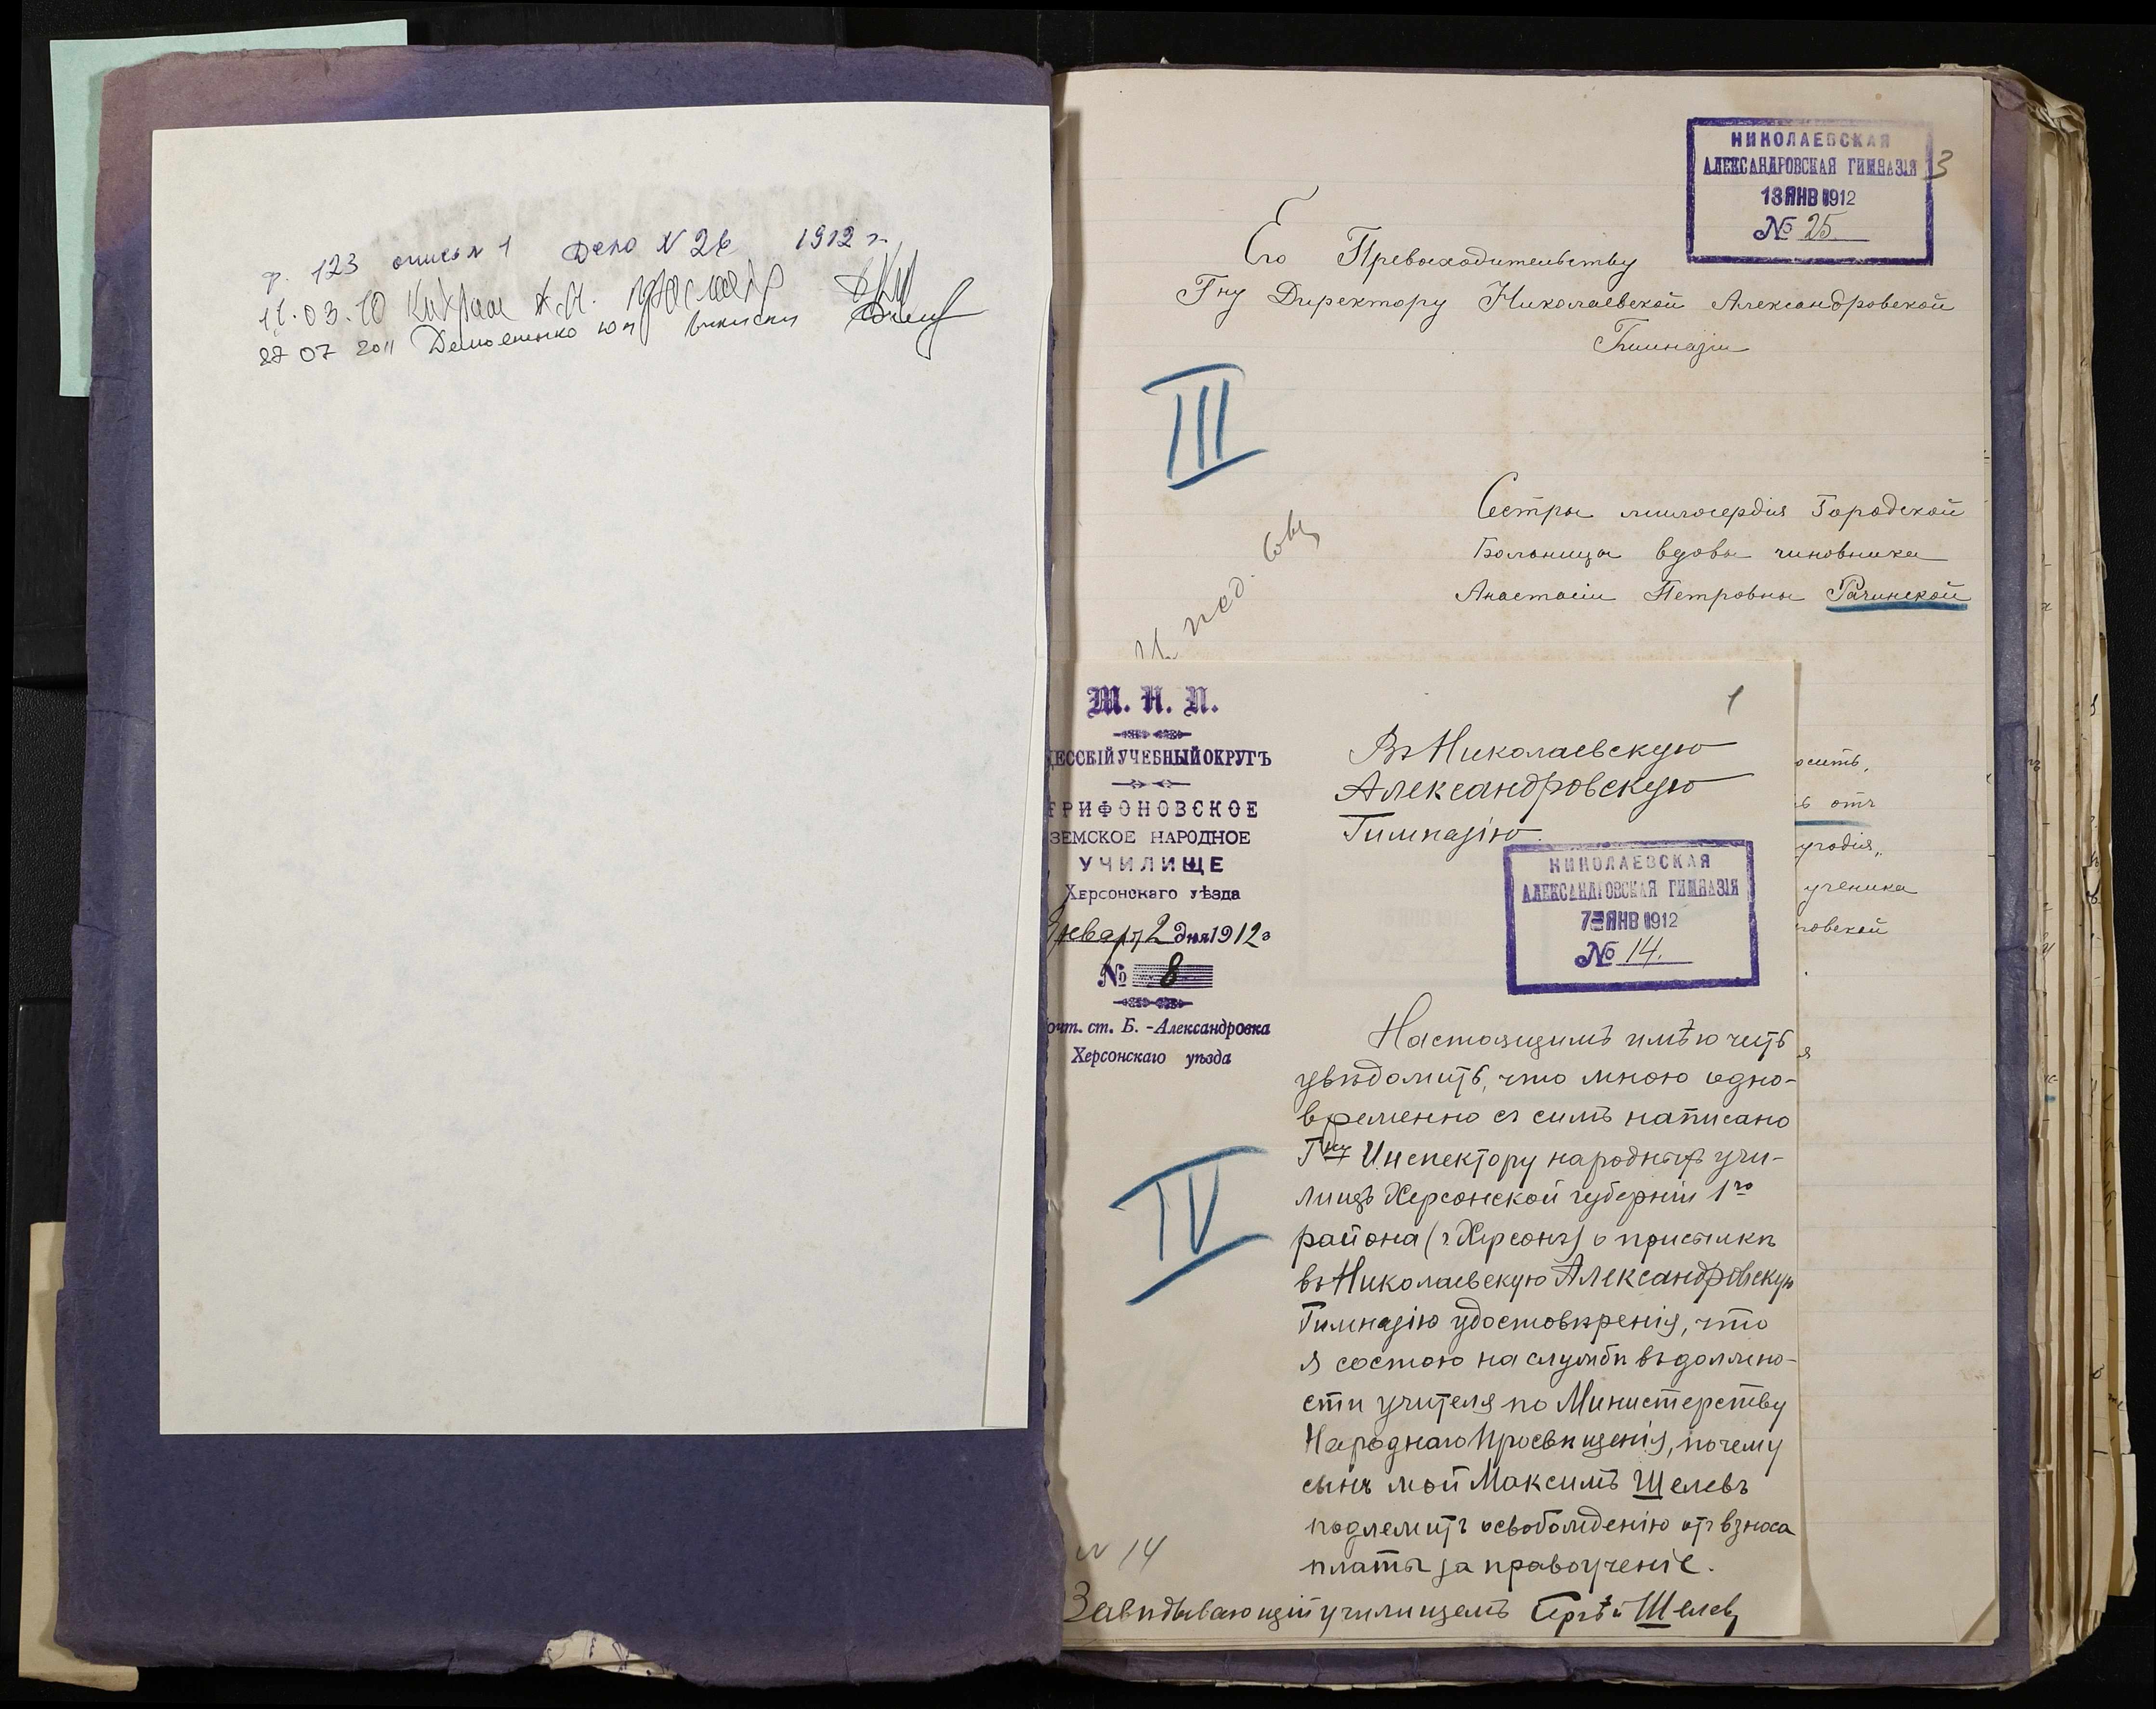 ф. 123 опись 1 Дело N 26 1912 г.
11.03.10
27 07 2011 Демьяненко
НИКОЛАЕВСКАЯ
АЛЕКСАНДРОВСКАЯ ГИМНАЗІЯ
13 ЯНВ 1912
№ 25.
3
Его Превосходительству
Гну Директору Николаевской Александровской
Гимназіи
III
Сестры милосердія Городской
Больницы вдовы чиновника
Анастасіи Петровны Рачинской
пед. сов
осить,
ь отъ
угодія,
ученика
ровской
М. Н. П.
ДЕССКІЙ УЧЕБНЫЙ ОКРУГЪ
ТРИФОНОВСКОЕ
ЗЕМСКОЕ НАРОДНОЕ
УЧИЛИЩЕ
Херсонскаго уѣзда
Январ 2 дня 1912 г
№ 8
очт. ст. Б. -Александровка
Херсонскаго уѣзда
1
Въ Николаевскую
Александровскую
Гимназію.
НИКОЛАЕВСКАЯ
АЛЕКСАНДРОВСКАЯ ГИМНАЗІЯ
7 ЯНВ 1912
№ 14.
IV
Настоящимъ имѣю честь
увѣдомить, что мною одно-
временно съ симъ написано
Гну Инспектору народныхъ учи-
лищъ Херсонской губерніи 1го
района (г. Херсонъ) о присылкѣ
въ Николаевскую Александровскую
Гимназію удостовѣренія, что
я состою на службѣ въ должно-
сти учителя по Министерству
Народнаго Просвѣщенія, почему
сынъ мой Максимъ Шелевъ
подлежитъ освобожденію отъ взноса
платы за правоученіе.
N 14
Завѣдывающій училищемъ Сергѣй Шелевъ